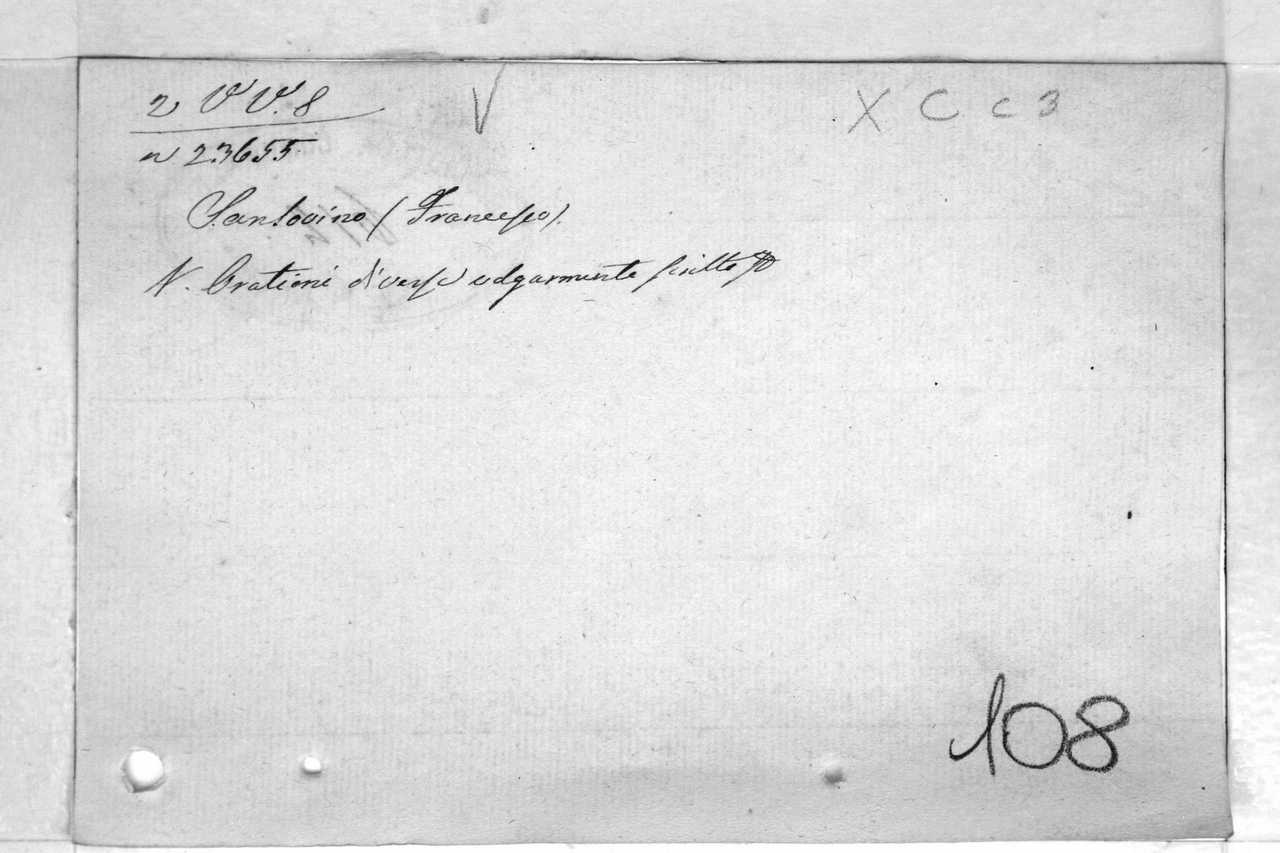 2 V V. 8 V X C c 3
n 23655
Sansovino (Francesco).
V. Orationi diverse volgarmente scritte
108